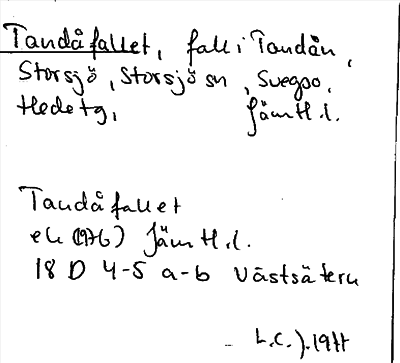 Tandåfallet, fall i Tandån,
Storsjö, Storsjö sn, Svegs o.
Hede tg, Jämtl.l.
Tandåfallet
ek (1976) Jämtl.l.
18 D 4-5 a-b Västsätern
L.C.J. 1977